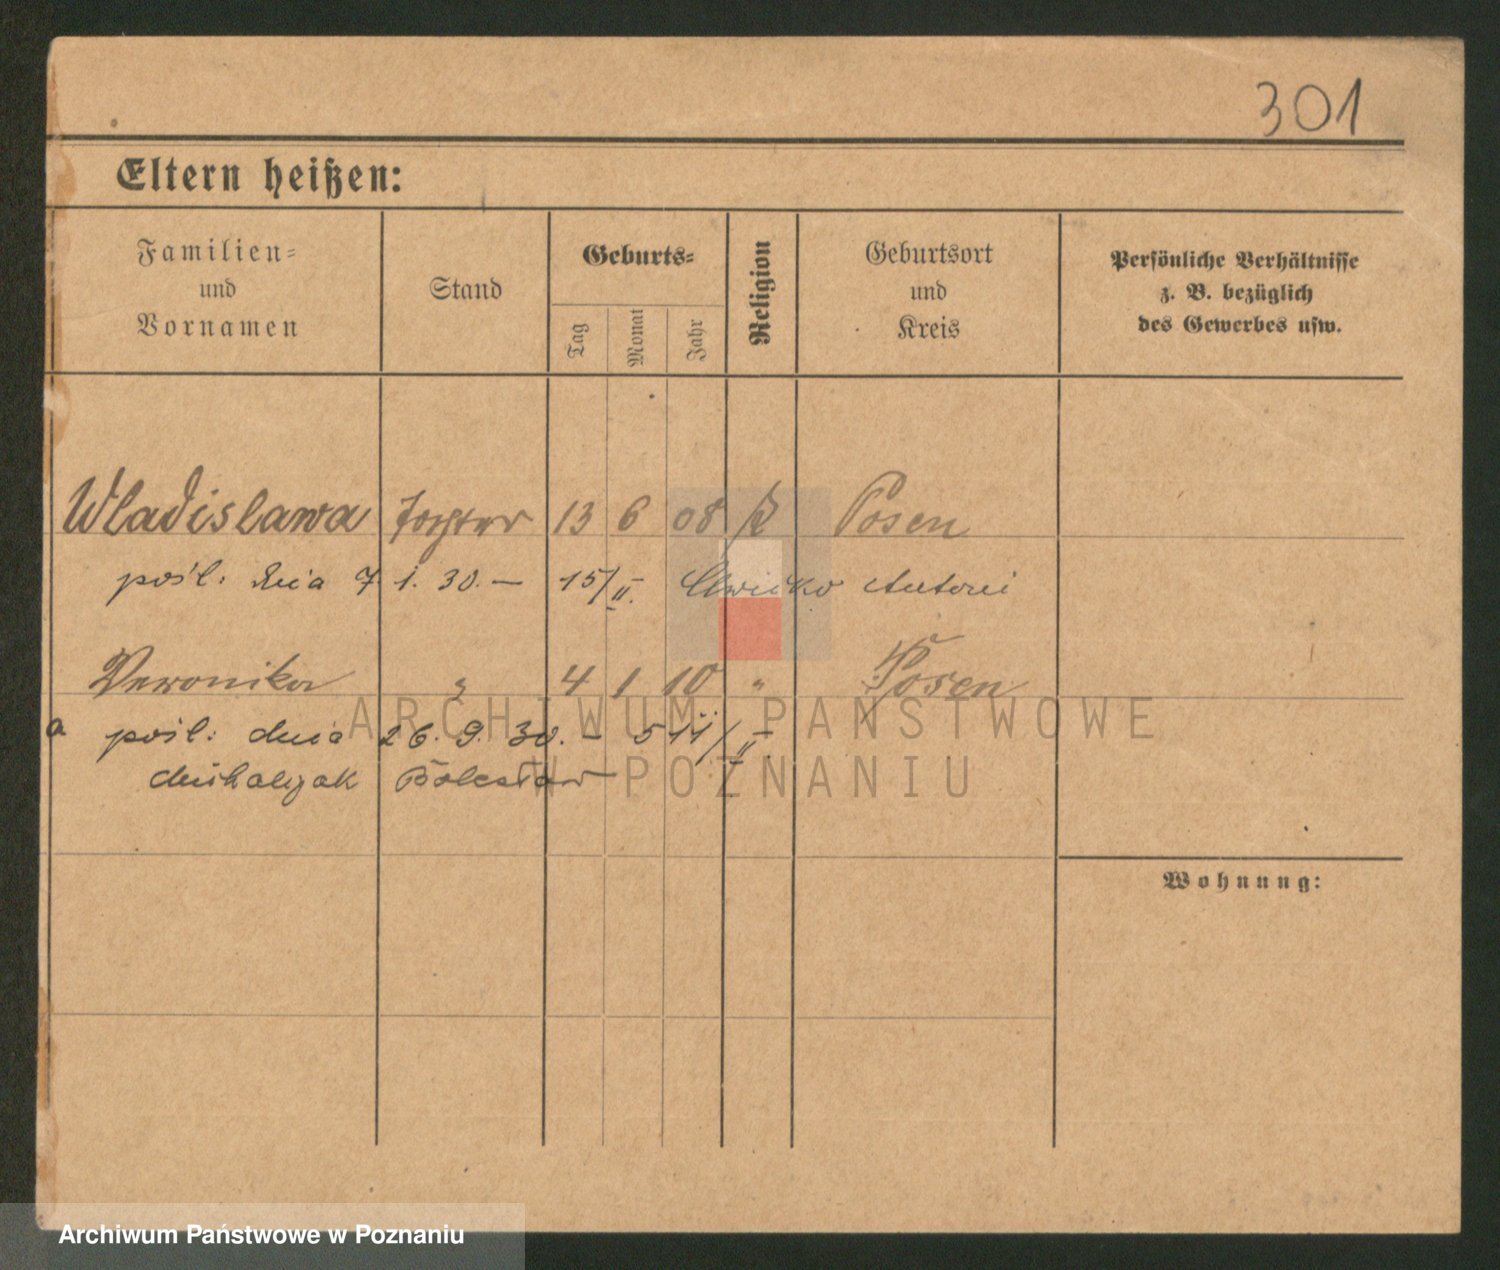 301
Eltern heißen:
Familien-
und
Vornamen
Stand
Geburts-
Tag
Monat
Jahr
Religion
Geburtsort
und
Kreis
Persönliche Verhältnisse
z. B. bezüglich
des Gewerbes usw.
Wladislawa Tochter 13 6 08 k Posen
pośl: dnia 7. 1. 30. — 15/II. Antoni
Veronika " 4 1 10 " Posen
a pośl: dnia 26. 9. 30. - 511/II
Michalczak Bolesław
Wohnung:
ARCHIWUM PAŃSTWOWE
W POZNANIU
Archiwum Państwowe w Poznaniu